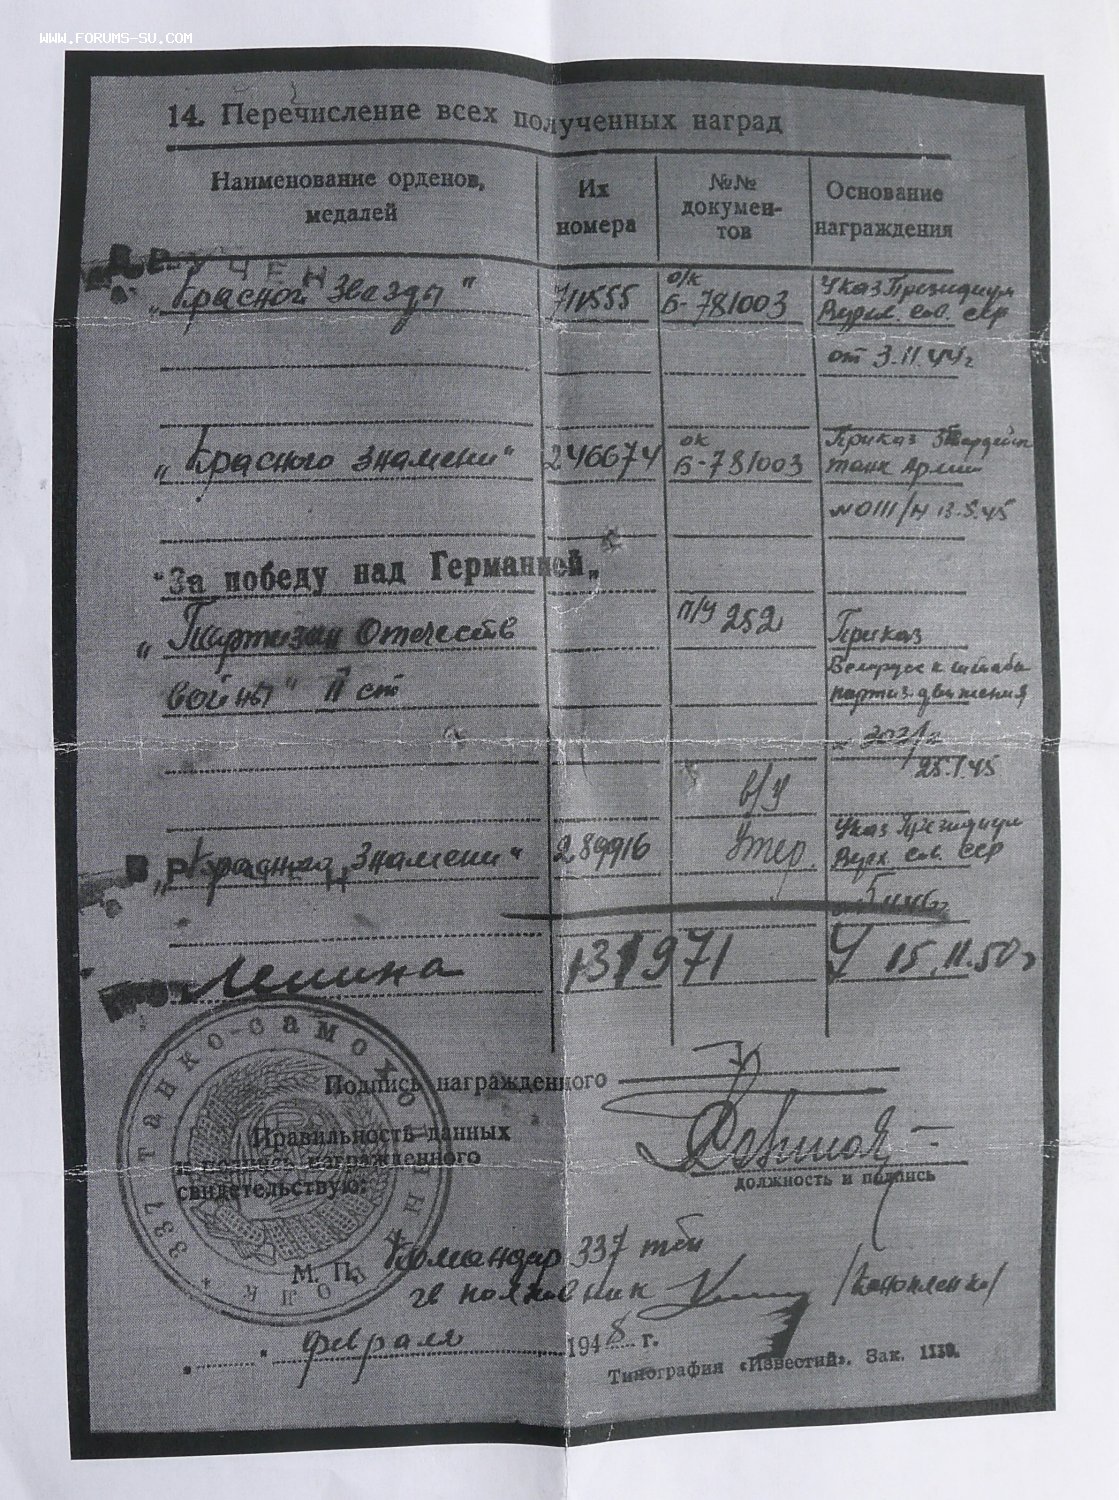 WWW.FORUMS-SU.COM
14. Перечисление всех полученных наград
Наименование орденов, медалей
Их номера
№№ документов
Основание награждения
„Красной Звезды" 711555 о/к Б-781003 Указ Президиум
Верх. Сов. ССР
от 3.11.44г
„Красного Знамени" 246674 ок Б-781003 Приказ Гвардейск
танк Армии
№ 0111/н 13.5.45
"За победу над Германией„
„Партизан Отечеств п/у 252 Приказ
войны" II ст Белорусск штаба
партиз движения
25.1.45
в/у
„Красного Знамени" 289916 Утер. Указ Президиум
Верх. Сов. ССР
Ленина 131971 У 15.11.50г
Подпись награжденного
Правильность данных
и подпись награжденного
свидетельствую:
должность и подпись
337 ТАНКО-САМОХОДН ПОЛК
М. П.
Командир 337
гв полковник /Конопленко/
" " февраля 1948 г.
Типография «Известий». Зак. 1150.